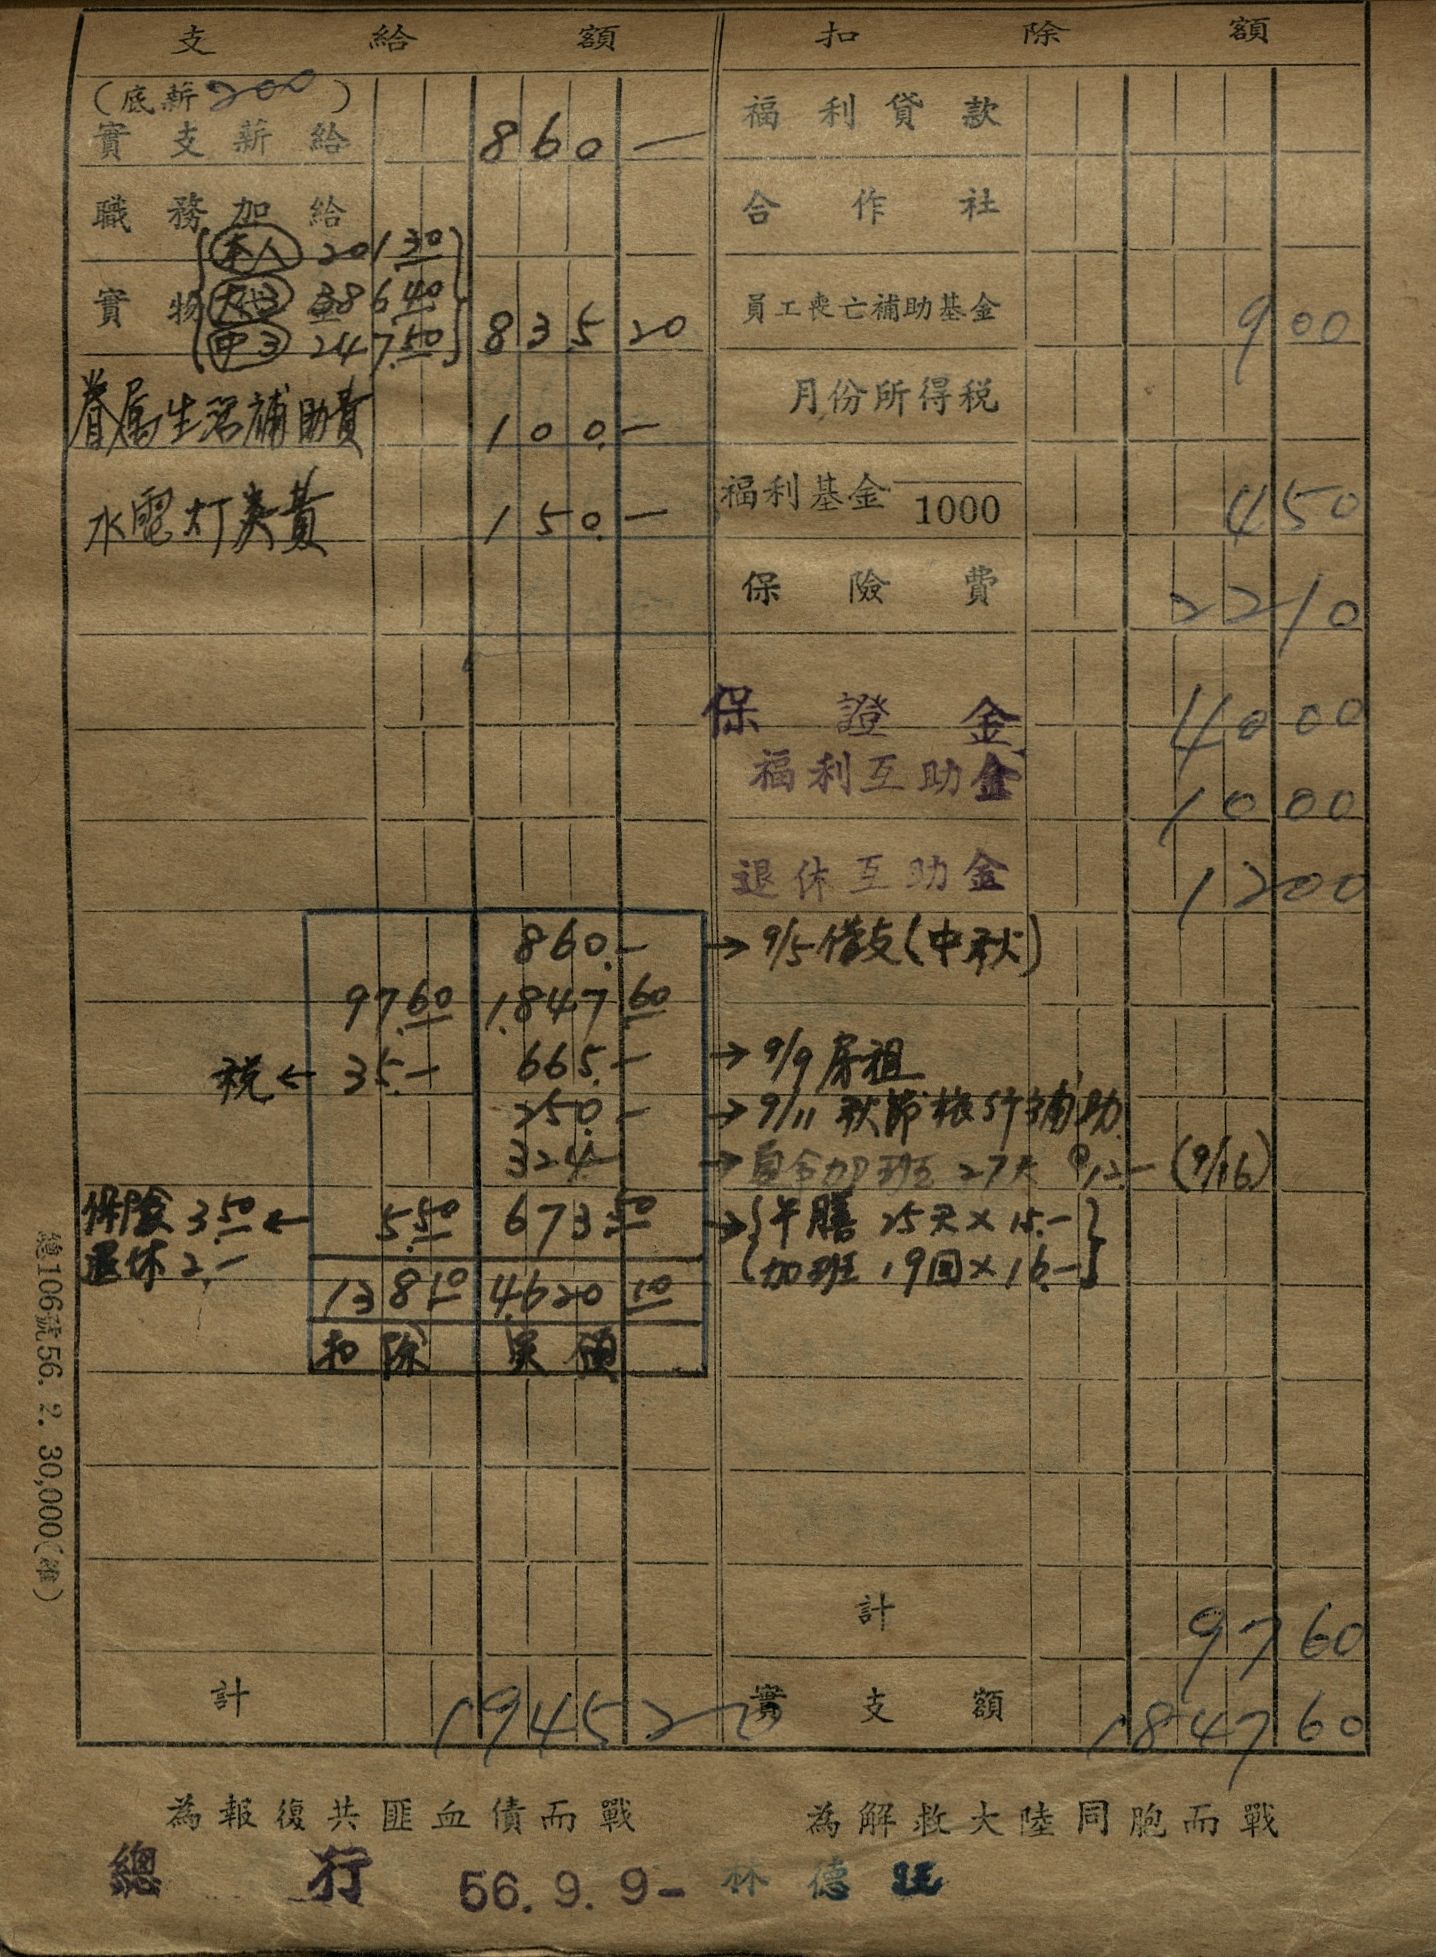 支給額
(底薪200)
實支薪給 860.—
職務加給
本人 201.30
實物代金 835 20
大3 386.40
中3 247.50
眷屬生活補助費 100.—
水電灯炭費 150.—
860.—
97.60 1,847 60
税← 35.— 665.—
250.—
324.—
保險 3.50 ← 5.50 673 50
退休 2.—
138 10 4,620 10
扣除 實領
計 1945 20
扣除額
福利貸款
合作社
員工喪亡補助基金 9 00
月份所得税
福利基金 /1000 4 50
保險費 22 10
保證金 40 00
福利互助金 10 00
退休互助金 12 00
→9/5借支(中秋)
→9/9房租
→9/11秋節旅行補助
→ 加班27天@12.—(9/16)
→午膳 25天×15.—
加班 19回×16.—
計 97 60
實支額 1847 60
為報復共匪血債而戰
為解救大陸同胞而戰
總行 56.9.9- 林德旺
總106號56.2.30,000(維)